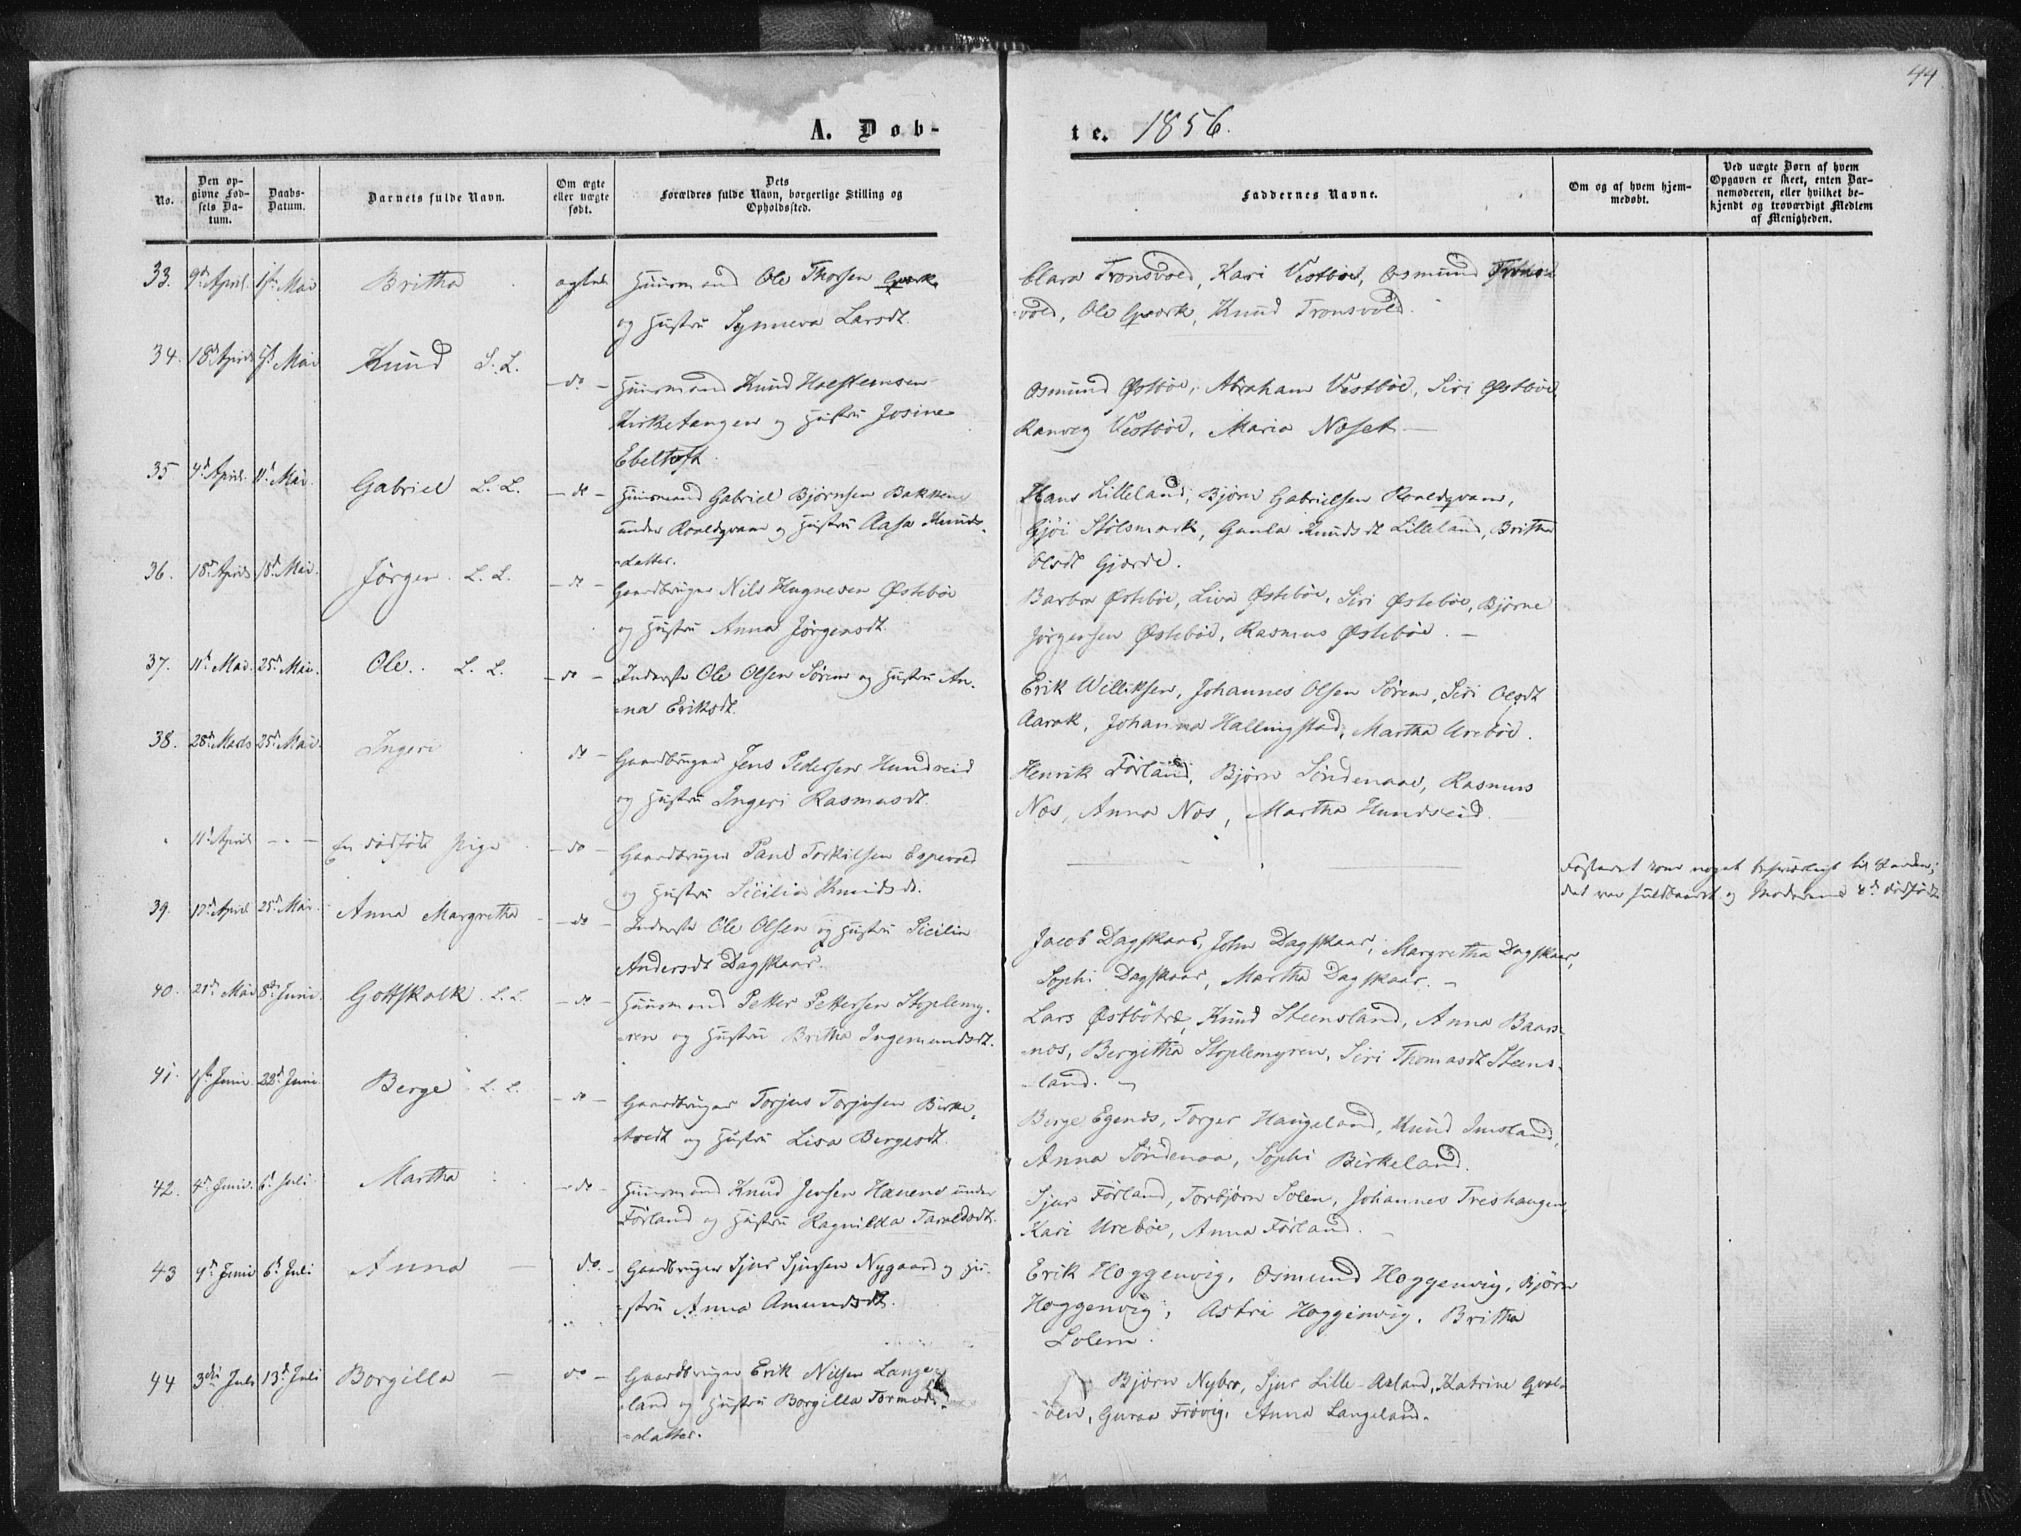 44
A. Døb-
te. 1856.
No.
Den op-
givne Fød-
sels Da-
tum.
Daabs-
Datum.
Barnets fulde Navn.
Om ægte
eller uægte
født.
Dets
Forældres fulde Navn, borgerlige Stilling og
Opholdssted.
Faddernes Navne.
Om og af hvem hjem-
medøbt.
Ved uægte Børn af hvem
Opgaven er skeet, enten Bar-
nemoderen, eller hvilket be-
kjendt og troværdigt Medlem
af Menigheden.
33. 9de April. 1ste Mai Britha ægte Huusmand Ole Thorsen Qvark
og Hustru Synneva Larsdt.
Clara Tronsvold, Kari Vestbøe, Osmund Trons
vold, Ole Qvark, Knud Tronsvold.
34. 18de April Mai Knud S. L. do Huusmand Knud Holstensen
Kirketangen og Hustru Josine
Ebeltoft.
Osmund Østbøe, Abraham Vestbøe, Siri Østbøe
Ranveg Vestbøe, Maria Næset
35 4de April. 11te Mai. Gabriel L. L. do Huusmand Gabriel Bjørnsen Bakkene
under Roaldqvam og Hustru Aasa Knuds-
datter.
Hans Lilleland, Bjørn Gabrielsen Roaldqvam,
Gjøi Stølsmark, Gunla Knudsdt Lilleland, Britha
Olsdt Gjerde.
36. 18de April 18de Mai. Jørgen. L. L. do Gaardbruger Nils Hagnesen Østebøe
og Hustru Anna Jørgensdt.
Barbra Østebøe, Liva Østebøe, Siri Østebøe, Bjørne
Jørgensen Østebøe, Rasmus Østebøe.
37. 11te Mai. 25de Mai. Ole. L. L. do Inderste Ole Olsen Sørene og Hustru An-
na Eriksdt.
Erik Williksen, Johannes Olsen Sørene, Siri Olsdt
Aarak, Johanna Hallingstad, Martha Urebøe.
38. 28de Marts 25de Mai. Ingeri do Gaardbruger Jens Pedersen Hundseid
og Hustru Ingeri Rasmusdt.
Henrik Førland, Bjørn Søndenaae, Rasmus
Næs, Anna Næs, Martha Hundseid.
11te April En dødfødt Pige do Gaardbruger Paul Torkilsen Espevold
og Hustru Sicilia Knudsdt.
Fosteret var noget
det var fuldbaaret og Moderens 8de dødfødte
39. 12te April 25de Mai. Anna Margretha do Inderste Ole Olsen og Hustru Sicilia
Andersdt Dagskaar.
Jacob Dagskaar, John Dagskaar, Margretha Dagskaar,
Sophi Dagskaar, Martha Dagskaar.
40. 21de Mai 8de Juni. Gottskalk. L. L. do Huusmand Petter Pettersen Stoplemy-
ren og Hustru Britha Ingemundsdt.
Lars Østbøtræ, Knud Steensland, Anna Baars-
næs, Bergitha Stoplemyren, Siri Thomasdt Steens-
land.
41. 1ste Juni 22de Juni. Berge L. L. do Gaardbruger Torjus Torjusen Birke-
tvedt og Hustru Lisa Bergesdt.
Berge Egends, Torger Haugeland, Knud Imsland,
Anna Søndenaa, Sophi Birkeland.
42. 4de Juni. 6te Juli Martha do Huusmand Knud Jensen Hauene under
Førland og Hustru Ragnilda Taraldsdt.
Sjur Førland, Torbjørn Solem, Johannes Treshaugen
Kari Urebøe, Anna Førland.
43 9de Juni 6te Juli Anna do. Gaardbruger Sjur Sjursen Nygaard og Hu-
stru Anna Amundsdt.
Erik Hoggenvig, Osmund Hoggenvig, Bjørn
Hoggenvig, Astri Hoggenvig, Britha
Solem.
44 3die Juli 13de Juli Borgilla do Gaardbruger Erik Nilsen Lange-
land og Hustru Borgilla Tormods-
datter.
Bjørn Nybro, Sjur Lille-Aaland, Katrine Qval-
øen, Guroa Frøvig, Anna Langeland.